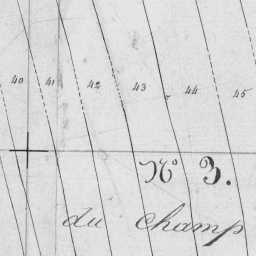 40 41 42 43 44 45
N° 3.
du champ